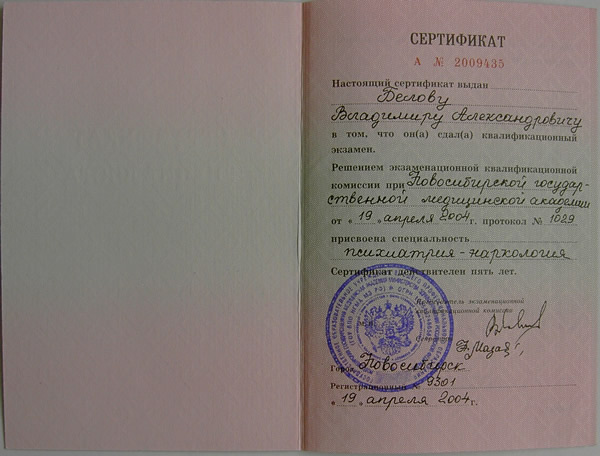 СЕРТИФИКАТ
А № 2009435
Настоящий сертификат выдан
Белову
Владимиру Александровичу
в том, что он(а) сдал(а) квалификационный
экзамен.
Решением экзаменационной квалификационной
комиссии при Новосибирской государ-
ственной медицинской академии
от « 19 » апреля 2004 г. протокол № 1029
присвоена специальность
психиатрия-наркология
Сертификат действителен пять лет.
Председатель экзаменационной
квалификационной комиссии
Секретарь
Город Новосибирск
Регистрационный № 9301
« 19 » апреля 2004 г.